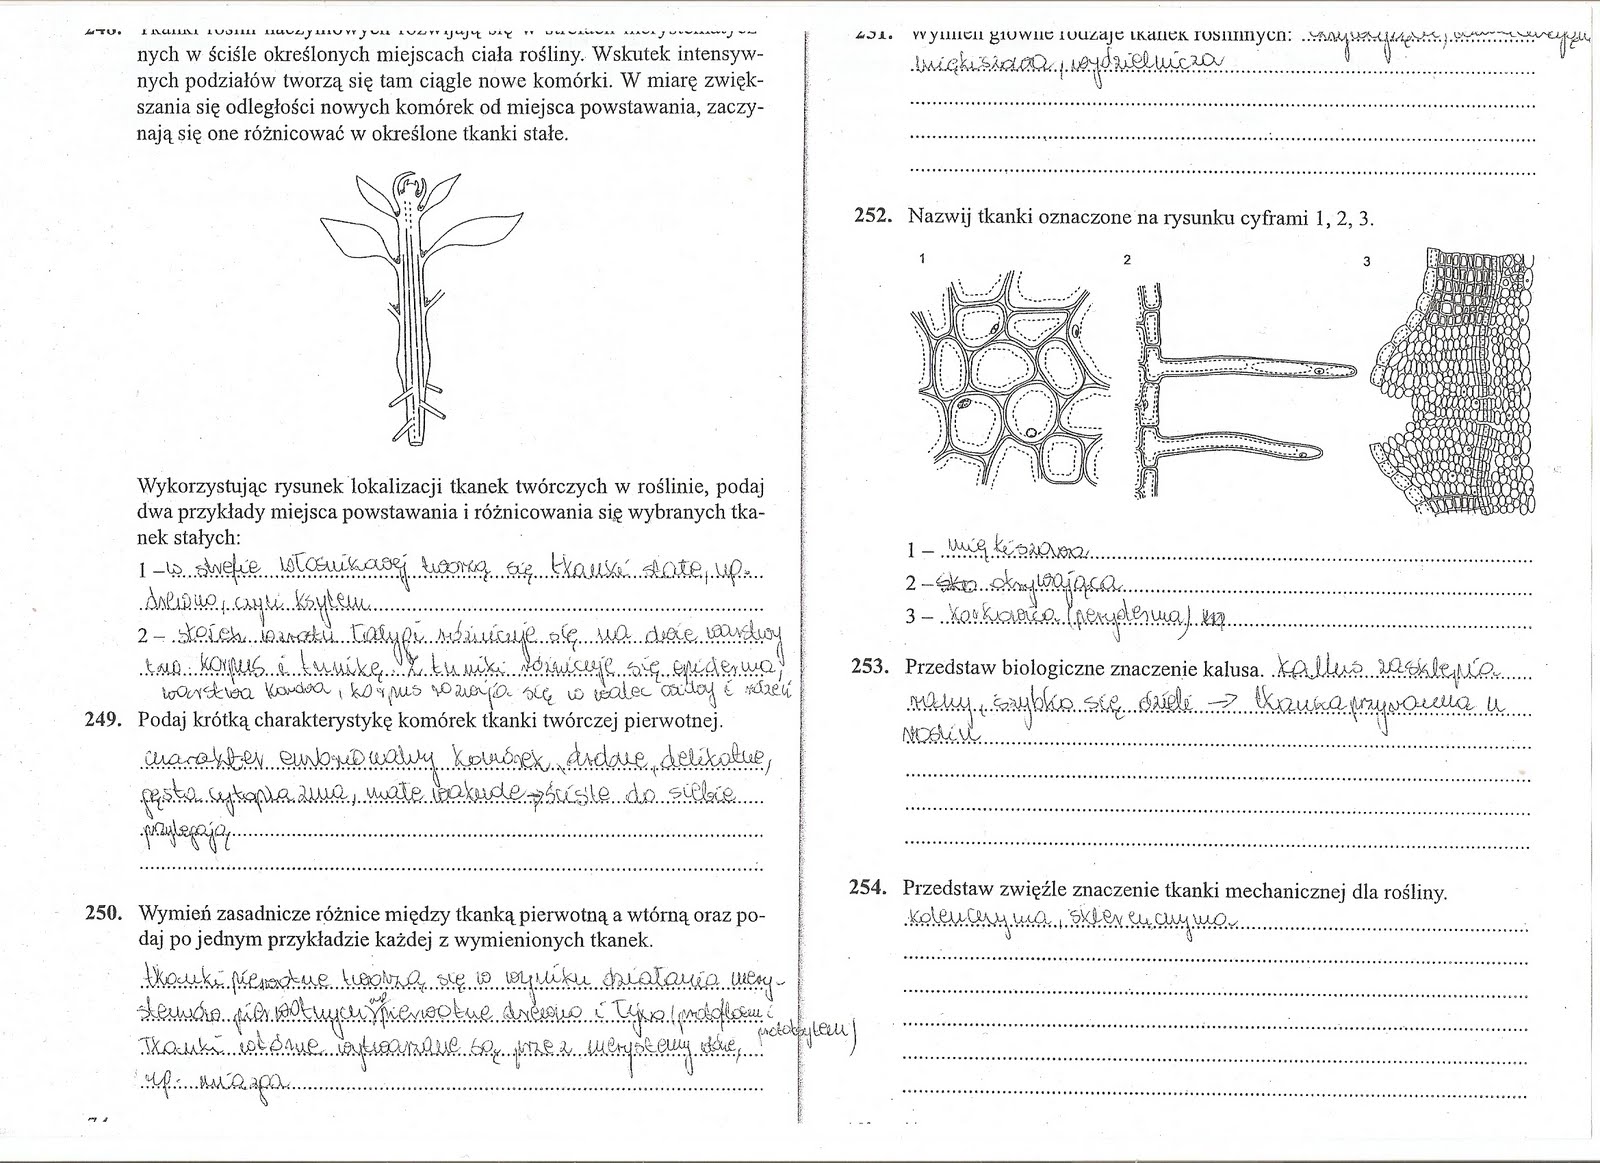 248. Tkanki roślin naczyniowych rozwijają się w strefach merystematycz-
nych w ściśle określonych miejscach ciała rośliny. Wskutek intensyw-
nych podziałów tworzą się tam ciągle nowe komórki. W miarę zwięk-
szania się odległości nowych komórek od miejsca powstawania, zaczy-
nają się one różnicować w określone tkanki stałe.
Wykorzystując rysunek lokalizacji tkanek twórczych w roślinie, podaj
dwa przykłady miejsca powstawania i różnicowania się wybranych tka-
nek stałych:
1 – w strefie włośnikowej tworzą się tkanki stałe, np.
drewno, czyli ksylem
2 – stożek wzrostu łodygi różnicuje się na dwie warstwy
tzw. korpus i tunikę. Z tuniki różnicuje się epiderma,
warstwa korowa, korpus rozwija się w walec osiowy i rdzeń
249. Podaj krótką charakterystykę komórek tkanki twórczej pierwotnej.
charakter embrionalny komórek, drobne, delikatne,
gęsta cytoplazma, małe wakuole → ściśle do siebie
przylegają
250. Wymień zasadnicze różnice między tkanką pierwotną a wtórną oraz po-
daj po jednym przykładzie każdej z wymienionych tkanek.
tkanki pierwotne tworzą się w wyniku działania mery-
stemów pierwotnych np pierwotne drewno i łyko (protofloem i
protoksylem)
Tkanki wtórne wytwarzane są przez merystemy wtórne,
np. miazga
251. Wymień główne rodzaje tkanek roślinnych:
miękiszowa, wydzielnicza
252. Nazwij tkanki oznaczone na rysunku cyframi 1, 2, 3.
1 2 3
1 – miękiszowa
2 – okrywająca
3 – korkowica (peryderma)
253. Przedstaw biologiczne znaczenie kalusa. Kallus zasklepia
rany, szybko się dzieli → tkanka przyranna u
roślin
254. Przedstaw zwięźle znaczenie tkanki mechanicznej dla rośliny.
kolenchyma, sklerenchyma